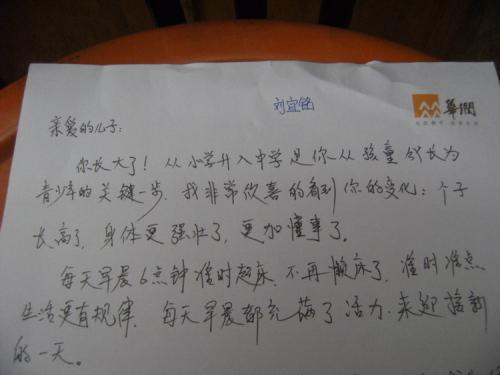 華潤
刘宜铭
亲爱的儿子:
你长大了！从小学升入中学是你从孩童成长为
青少年的关键一步,我非常欣喜的看到你的变化：个子
长高了,身体更强壮了,更加懂事了。
每天早晨6点钟准时起床,不再懒床了,准时准点
生活更有规律,每天早晨都充满了活力,来迎接新
的一天。